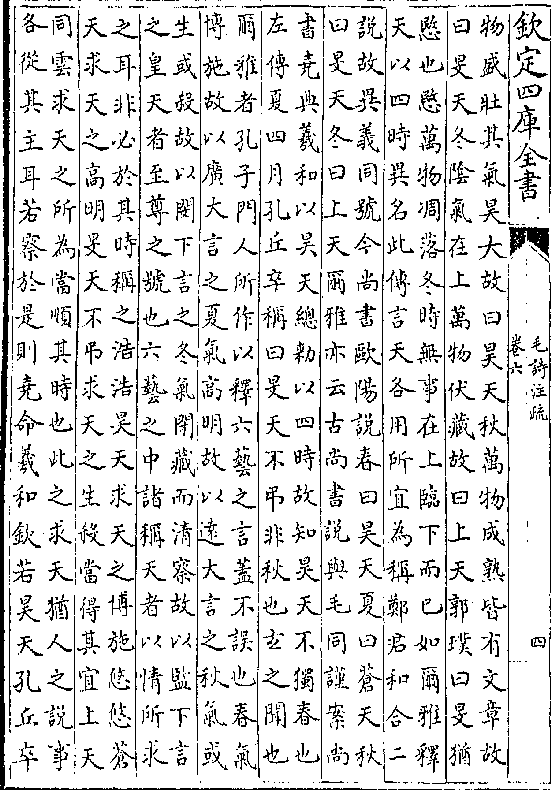 欽定四庫全書
毛詩注疏
卷六
四
物盛壯其氣昊大故曰昊天秋萬物成熟皆有文章故
曰旻天冬陰氣在上萬物伏藏故曰上天郭璞曰旻猶
愍也愍萬物凋落冬時無事在上臨下而已如爾雅釋
天以四時異名此傳言天各用所宜為稱鄭君和合二
說故異義同號今尚書歐陽說春曰昊天夏曰蒼天秋
曰旻天冬曰上天爾雅亦云古尚書說與毛同謹案尚
書堯典羲和以昊天總勑以四時故知昊天不獨春也
左傳夏四月孔丘卒稱曰旻天不弔非秋也玄之聞也
爾雅者孔子門人所作以釋六藝之言蓋不誤也春氣
博施故以廣大言之夏氣高明故以遠大言之秋氣或
生或殺故以閔下言之冬氣閉藏而清察故以監下言
之皇天者至尊之號也六藝之中諸稱天者以情所求
之耳非必於其時稱之浩浩昊天求天之博施悠悠蒼
天求天之高明旻天不弔求天之生殺當得其宜上天
同雲求天之所為當順其時也此之求天猶人之說事
各從其主耳若察於是則堯命羲和欽若昊天孔丘卒